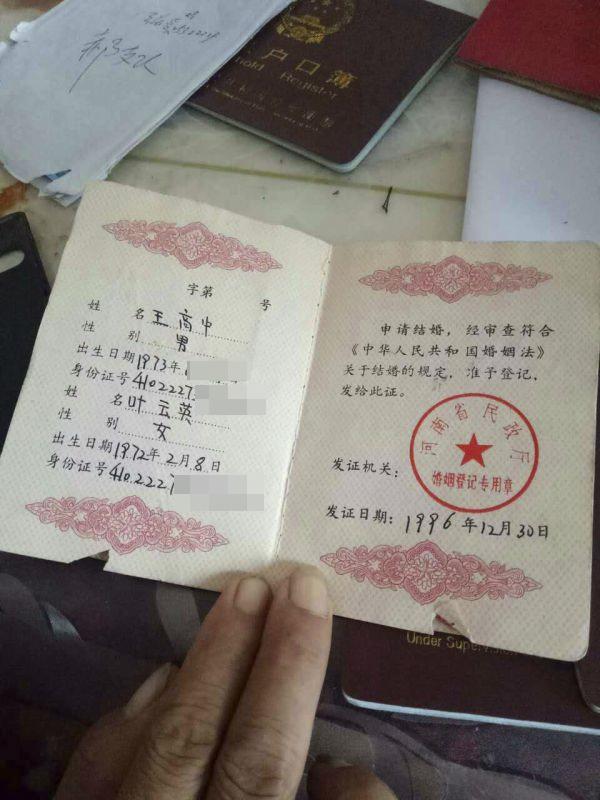 户口簿
hold Register
字第 号
姓 名 王高中
性 别 男
出生日期 1973年1
身份证号 4102227
姓 名 叶云英
性 别 女
出生日期 1972年2月8日
身份证号 4102227
申请结婚，经审查符合
《中华人民共和国婚姻法》
关于结婚的规定，准予登记，
发给此证。
发证机关：
河南省民政厅
婚姻登记专用章
发证日期：1996年12月30日
Under Supervision